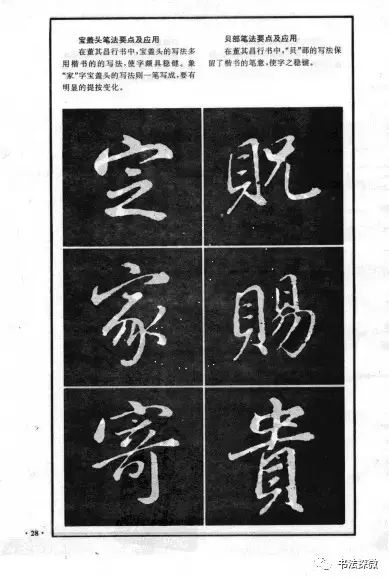 宝盖头笔法要点及应用
在董其昌行书中,宝盖头的写法多
用楷书的的写法,使字颇具稳健。象
“家”字宝盖头的写法则一笔写成,要有
明显的提按变化。
贝部笔法要点及应用
在董其昌行书中,“贝”部的写法保
留了楷书的笔意,使字之稳健。
定
家
寄
貺
賜
貴
·28·
书法探教